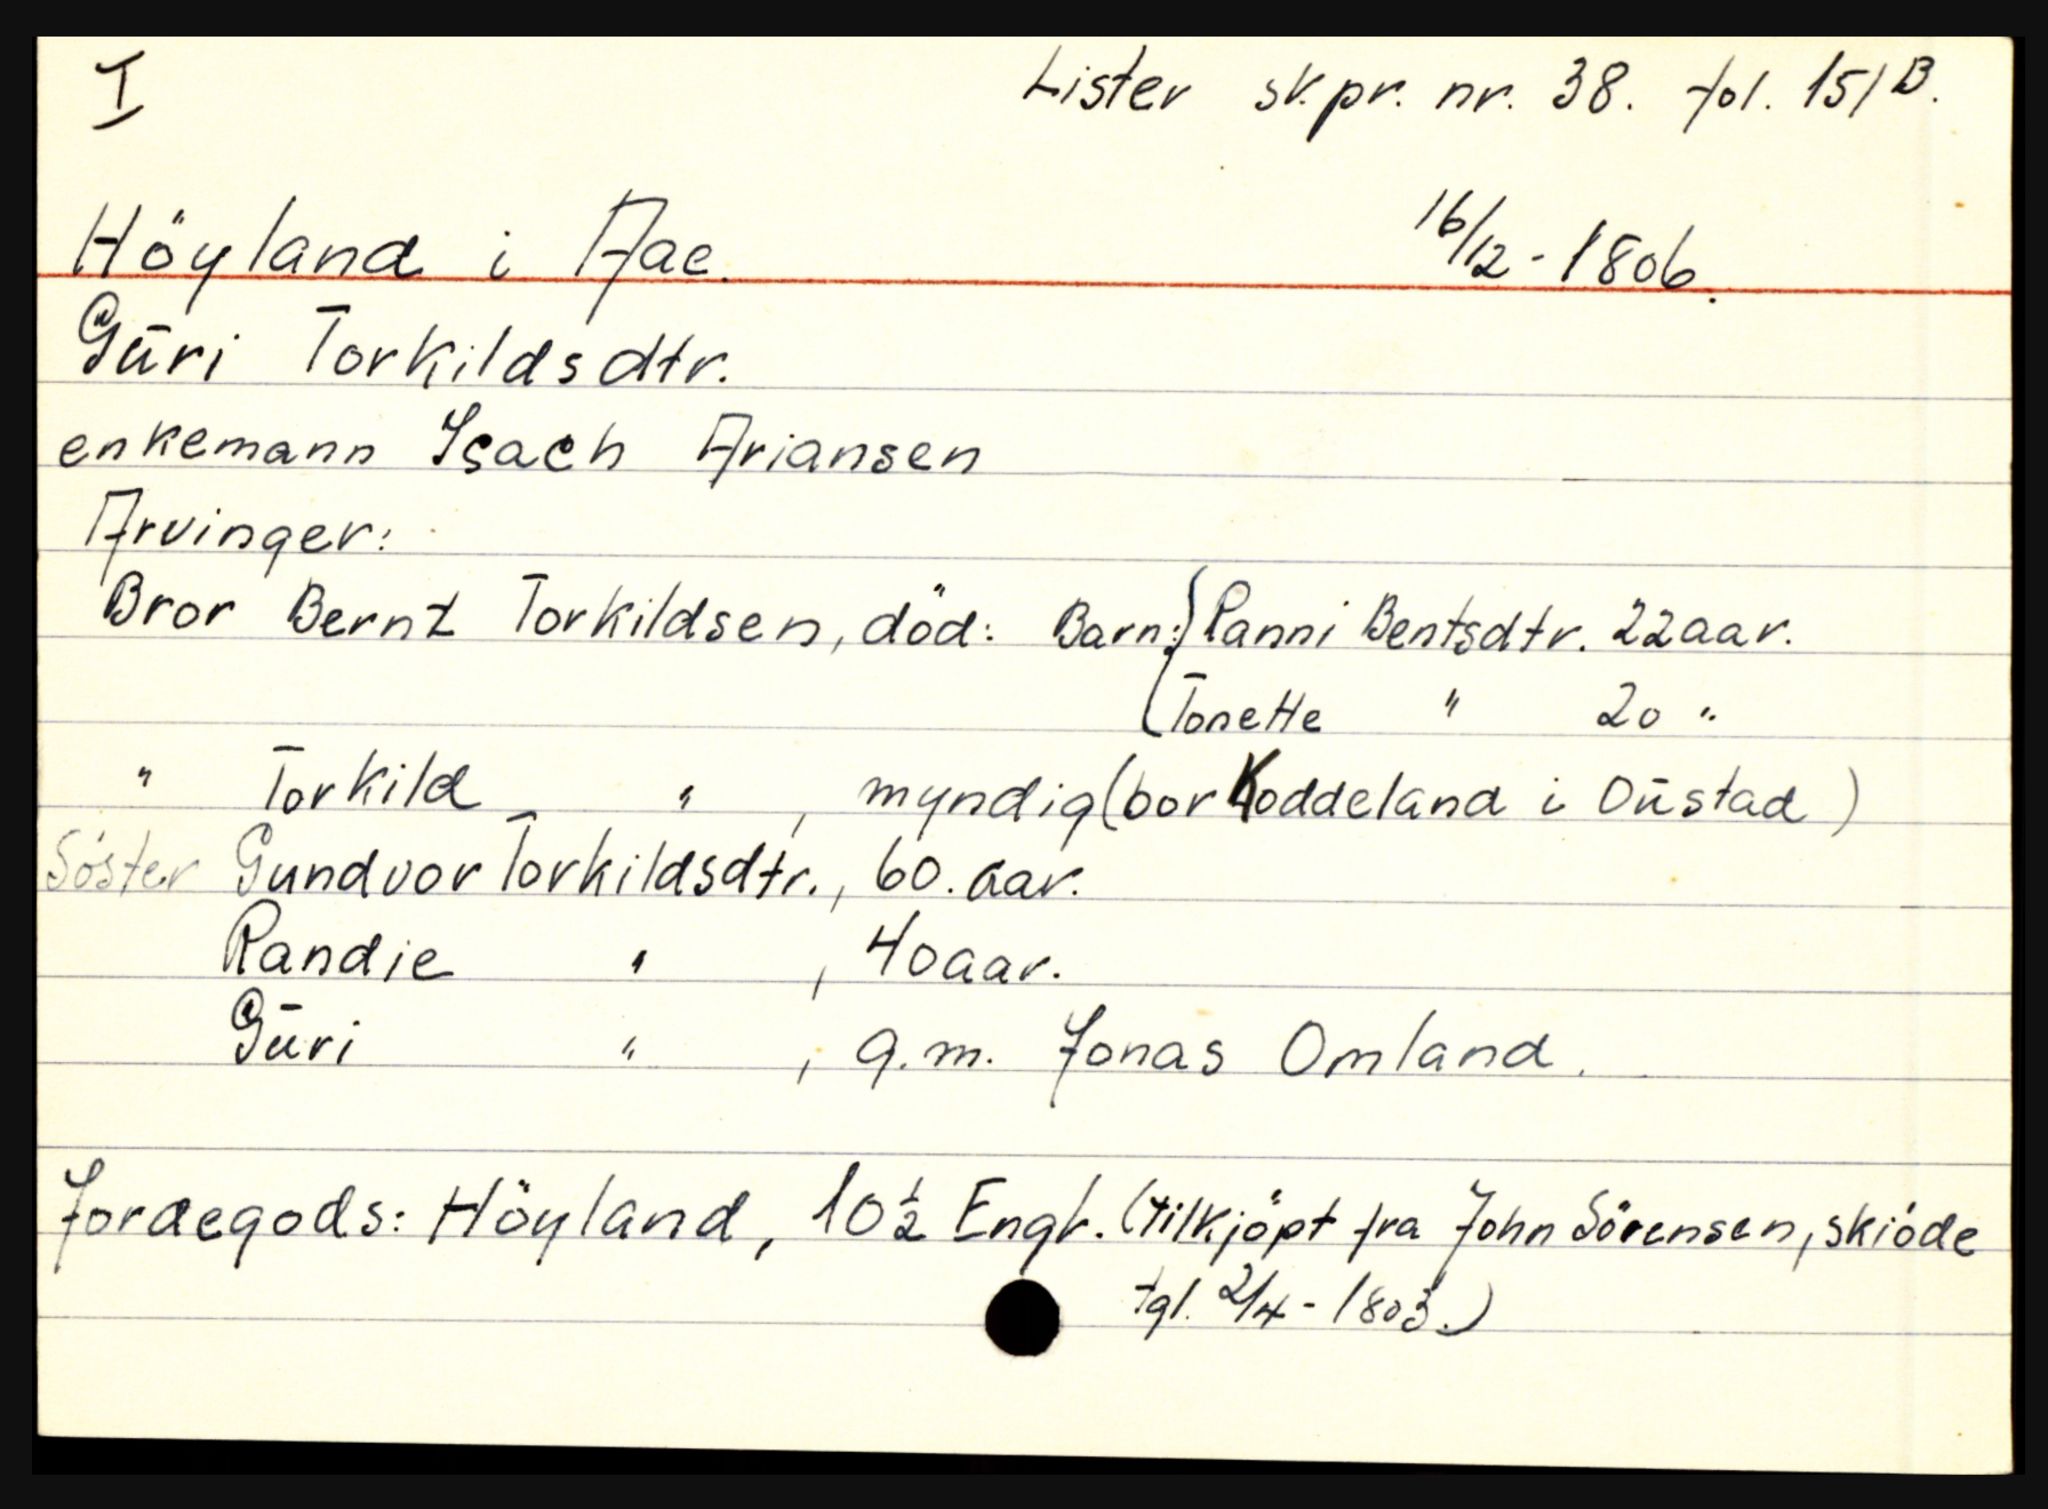 I Lister sk.pr. nr. 38. fol. 151 B.
Höyland i Aae. 16/12 - 1806.
Gūri Torkildsdtr.
enkemann Isach Ariansen
Arvinger:
Bror Bernt Torkildsen, död: Barn: { Ranni Bentsdtr. 22 aar.
Tonette " 20 "
" Torkild " , myndig (bor Koddeland i Oūstad)
Söster Gundvor Torkildsdtr., 60. aar.
Randie " , 40 aar.
Gūri " , g.m. Jonas Omland.
Jordegods: Höyland, 10 ½ Engl. (tilkjöpt fra John Sörensen, skiöde
tgl. 2/4 - 1803.)